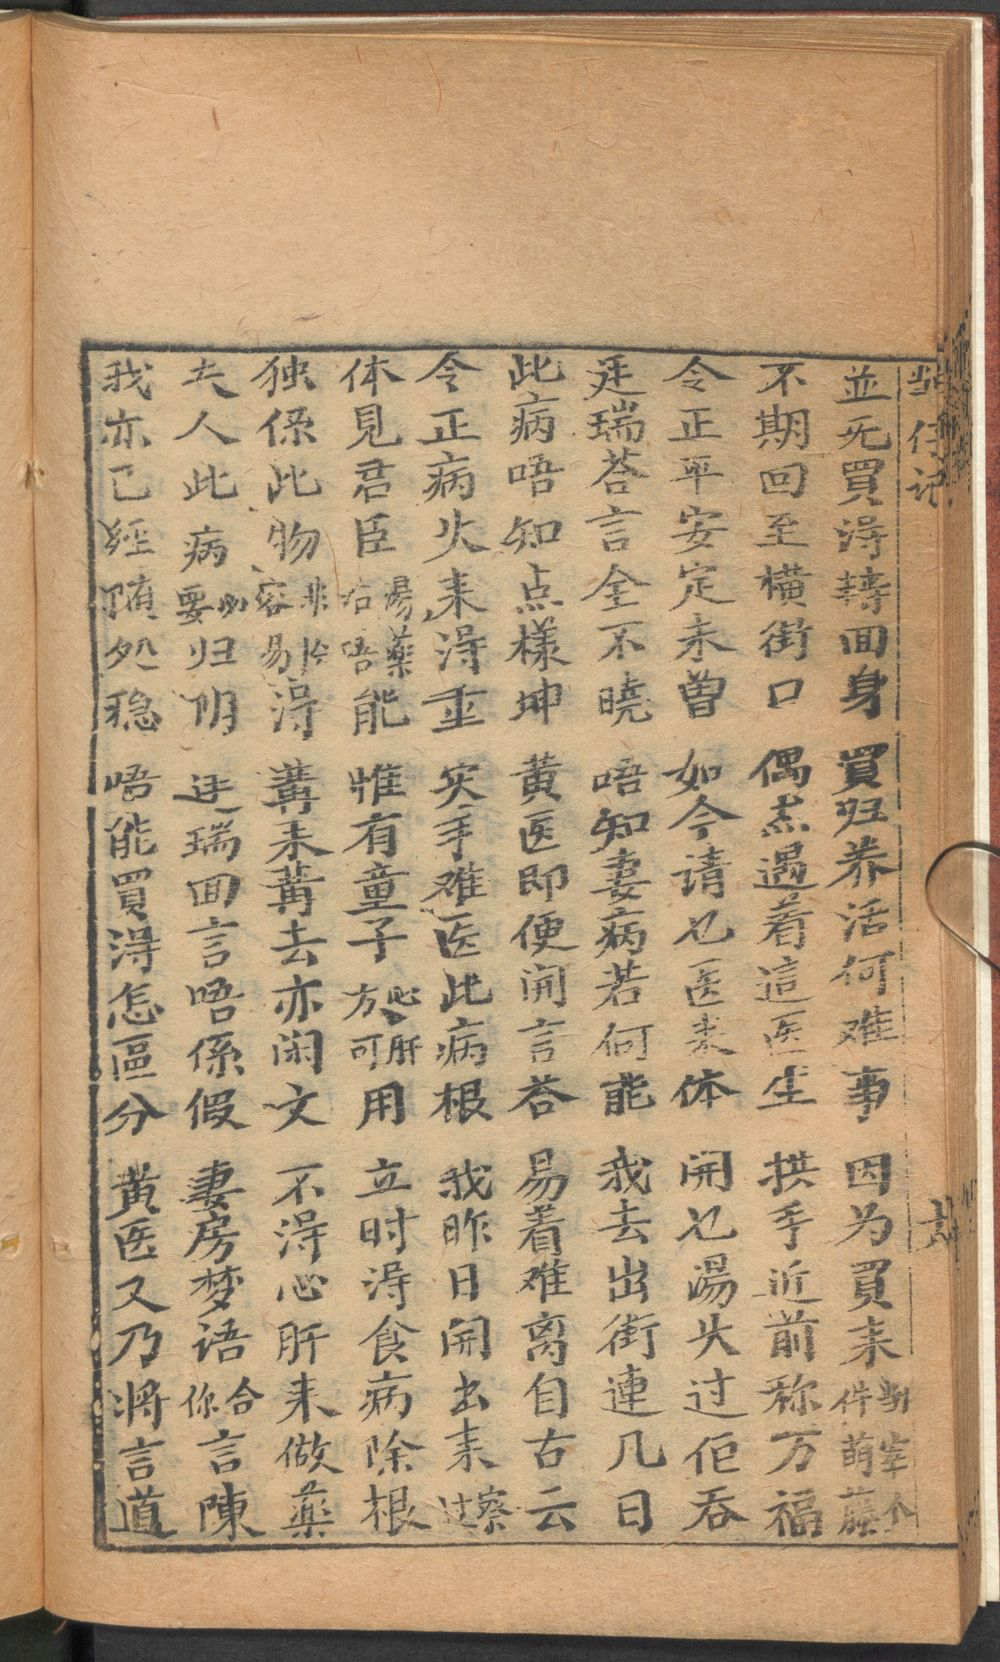 仔记
並无買淂轉囬身 買归养活何难事 因为買来劏宰个件萌藤
不期回至橫街口 偶然遇着這医生 拱手近前称万福
令正平安定未曾 如今请乜医来体 開乜湯头过佢吞
廷瑞荅言全不曉 唔知妻病若何能 我去出街連几日
此病唔知点様坤 黄医即便開言荅 易着难离自古云
令正病火来淂重 实手难医此病根 我昨日開出来察过
体見君臣湯藥右唔能 惟有童子心肝方可用 立时淂食病除根
独係此物非今容易淂 講来講去亦闲文 不淂心肝来做藥
夫人此病必要归阴 廷瑞囬言唔係假 妻房梦语合你言陳
我亦已經随処稳 唔能買淂怎區分 黄医又乃将言道